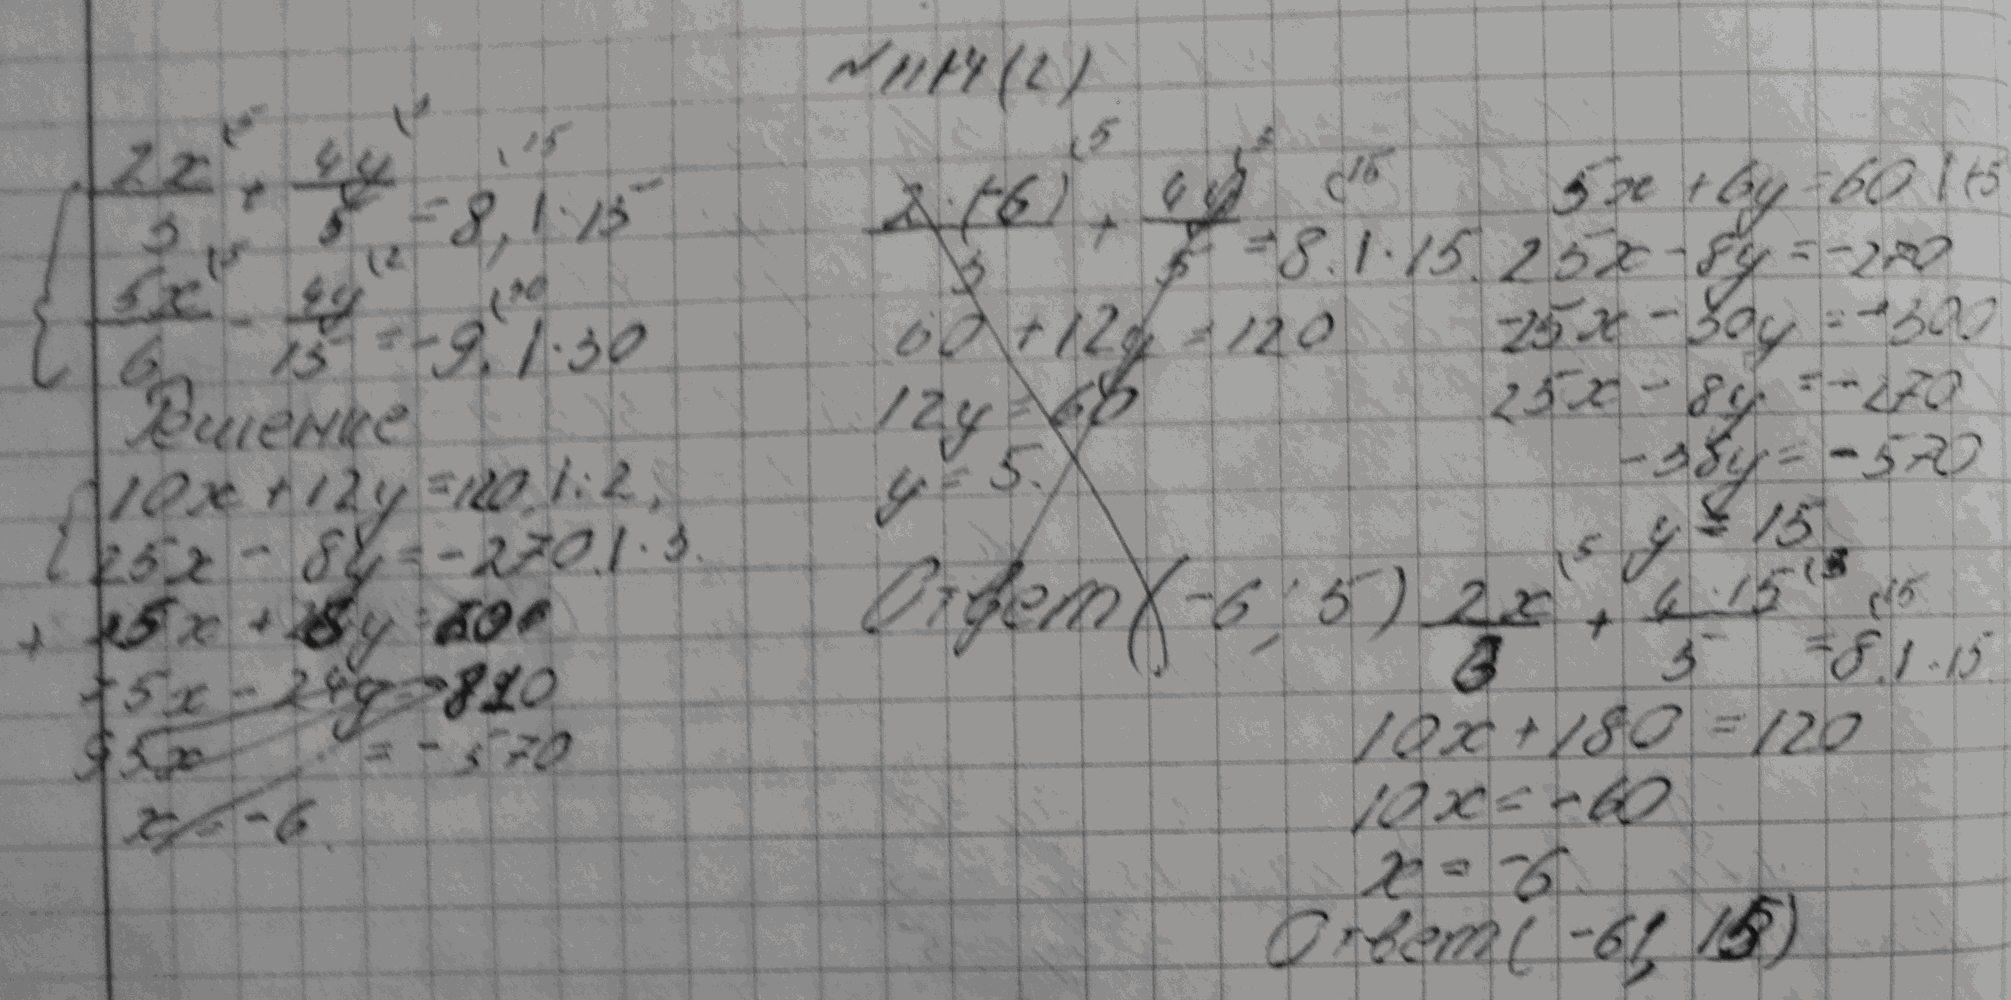 №1174(2)
2x/3 (5 + 4y/5 (3 = 8, (15 | · 15
5x/6 (5 - 4y/15 (2 = -9, (30 | · 30
Решение
10x + 12y = 120. | : 2,
25x - 8y = -270. | · 3.
75x - 24y = -810
= -570
x = -6.
2·(-6)/3 (5 + 4y/5 (3 = 8. (15 | · 15.
60 + 12y = 120
12y = 60
y = 5.
Ответ (-6; 5)
5x + 6y = 60 | (-5
25x - 8y = -270
-25x - 30y = -300
25x - 8y = -270
-38y = -570
y = 15
2x/3 (5 + 4·15/5 (3 = 8. (15 | · 15
10x + 180 = 120
10x = -60
x = -6
Ответ (-6; 15)